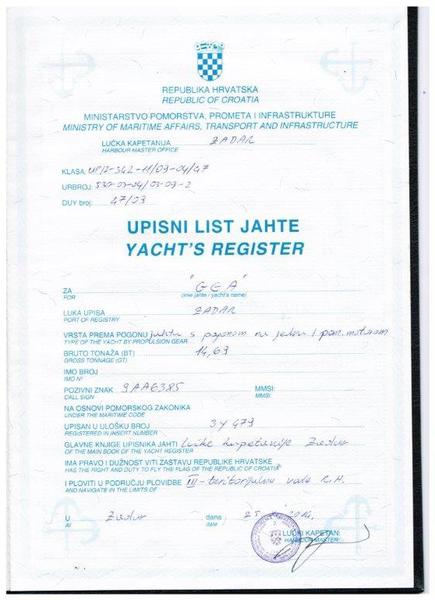 REPUBLIKA HRVATSKA
REPUBLIC OF CROATIA
MINISTARSTVO POMORSTVA, PROMETA I INFRASTRUKTURE
MINISTRY OF MARITIME AFFAIRS, TRANSPORT AND INFRASTRUCTURE
LUČKA KAPETANIJA ZADAR
HARBOUR MASTER OFFICE
KLASA: UP/I-342-11/03-04/47
URBROJ: 530-03-04/03-03-2
DUY broj: 47/03
UPISNI LIST JAHTE
YACHT'S REGISTER
ZA "GEA"
FOR (ime jahte / yacht's name)
LUKA UPISA ZADAR
PORT OF REGISTRY
VRSTA PREMA POGONU jahta s pogonom na jedra i pom. motorom
TYPE OF THE YACHT BY PROPULSION GEAR
BRUTO TONAŽA (BT) 14,69
GROSS TONNAGE (GT)
IMO BROJ
IMO Nº
POZIVNI ZNAK 9AA6385 MMSI:
CALL SIGN MMSI:
NA OSNOVI POMORSKOG ZAKONIKA
UNDER THE MARITIME CODE
UPISAN U ULOŠKU BROJ 3Y 479
REGISTERED IN INSERT NUMBER
GLAVNE KNJIGE UPISNIKA JAHTI Lučke kapetanije Zadar
OF THE MAIN BOOK OF THE YACHT REGISTER
IMA PRAVO I DUŽNOST VITI ZASTAVU REPUBLIKE HRVATSKE
HAS THE RIGHT AND DUTY TO FLY THE FLAG OF THE REPUBLIC OF CROATIA
I PLOVITI U PODRUČJU PLOVIDBE III - teritorijalne vode R.H.
AND NAVIGATE IN THE LIMITS OF
U Zadru dana 25 2014.
At DAN
LUČKI KAPETAN:
HARBOUR MASTER: